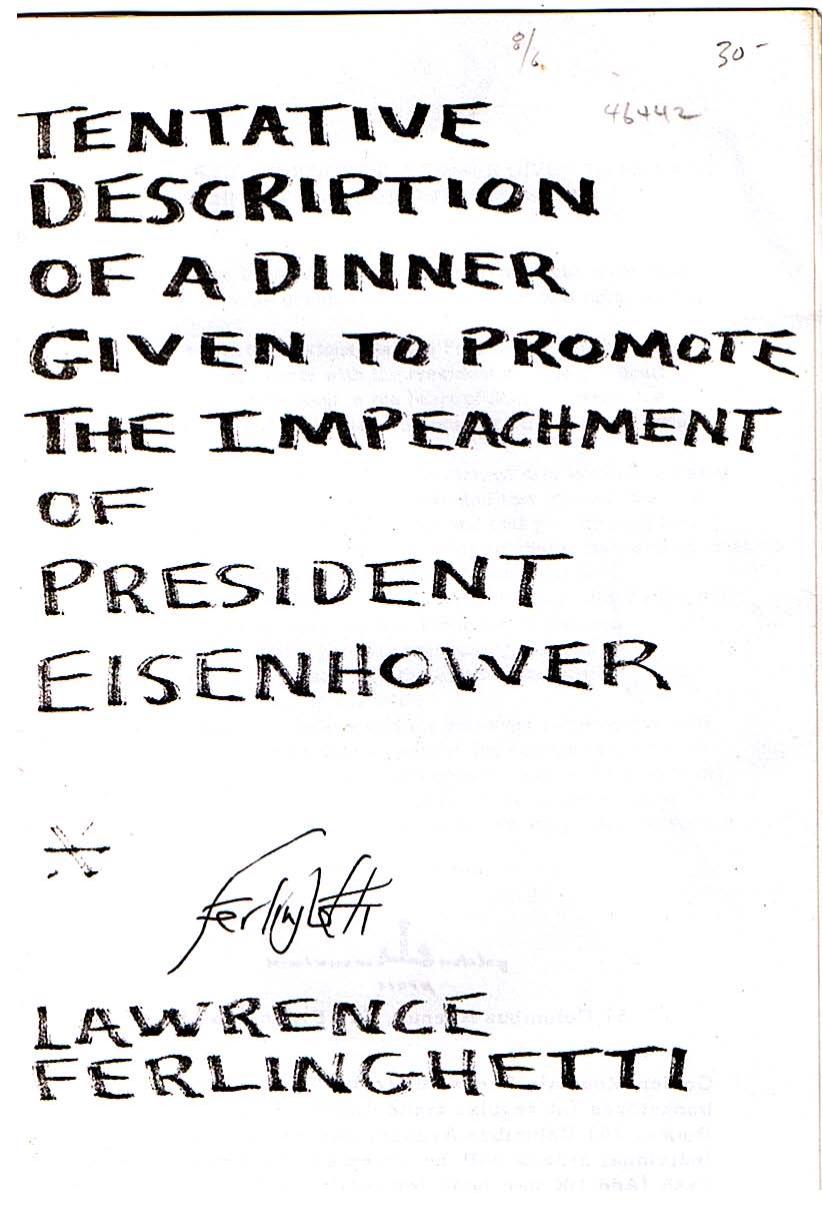 8/6
30-
46442
TENTATIVE
DESCRIPTION
OF A DINNER
GIVEN TO PROMOTE
THE IMPEACHMENT
OF
PRESIDENT
EISENHOWER
*
Ferlinghetti
LAWRENCE
FERLINGHETTI